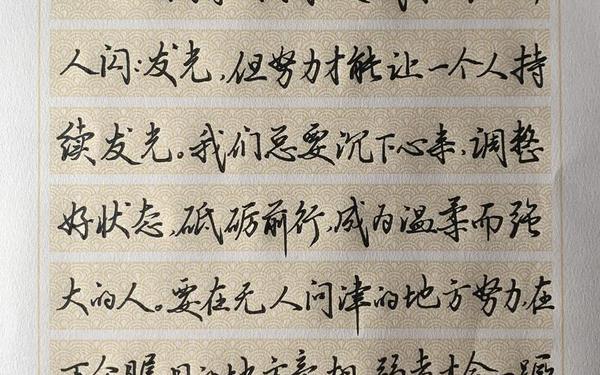 人闪闪发光,但努力才能让一个人持
续发光。我们总要沉下心来,调整
好状态,砥砺前行,成为温柔而强
大的人。要在无人问津的地方努力,在